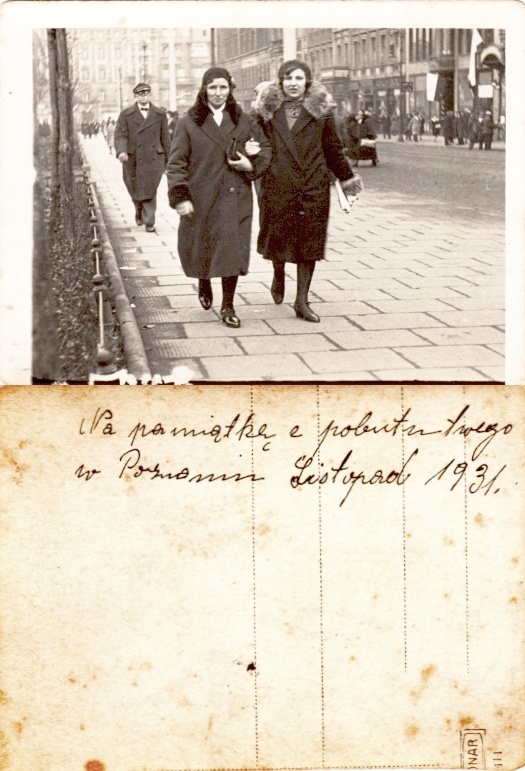 Na pamiątkę z pobutu twego
w Poznaniu Listopad 1931.
ONAR